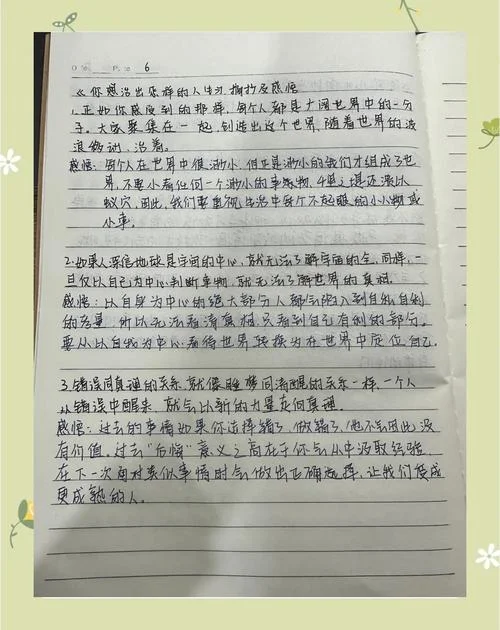 O %: P: 6
《你想活出怎样的人生》摘抄及感悟
1.正如你感受到的那样,每个人都是广阔世界中的一分
子。大家聚集在一起,创造出这个世界,随着世界的波
浪移动,活着。
感悟:每个人在世界中很渺小,但正是渺小的我们才组成了世
界,不要小看任何一个渺小的事物,千里之堤还溃以
蚁穴,因此,我们要重视生活中每个不起眼的小人物或
小事。
2.如果人深信地球是宇宙的中心,就无法了解宇宙的全,同样,一
旦仅以自己为中心判断事物,就无法了解世界的真相。
感悟:以自我为中心的绝大部分人都会陷入到自私自利
的 ,所以无法看清真相,只看到自己有利的部分。
要从以自我为中心看待世界转换为在世界中定位自己。
3.错误同真理的关系,就像睡梦同清醒的关系一样,一个人
从错误中醒来,就会以新的力量走向真理。
感悟:过去的事情如果你选择错了,做错了,他不会因此没
有价值。过去"后悔"意义之高在于你会从中汲取经验,
在下一次面对类似事情时会做出正确选择,让我们变成
更成熟的人。